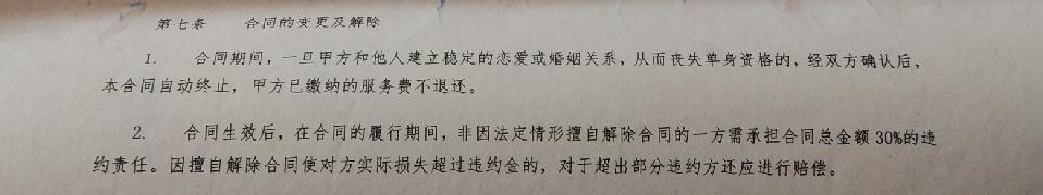 第七条 合同的变更及解除
1. 合同期间，一旦甲方和他人建立稳定的恋爱或婚姻关系，从而丧失单身资格的，经双方确认后，
本合同自动终止，甲方已缴纳的服务费不退还。
2. 合同生效后，在合同的履行期间，非因法定情形擅自解除合同的一方需承担合同总金额30%的违
约责任。因擅自解除合同使对方实际损失超过违约金的，对于超出部分违约方还应进行赔偿。